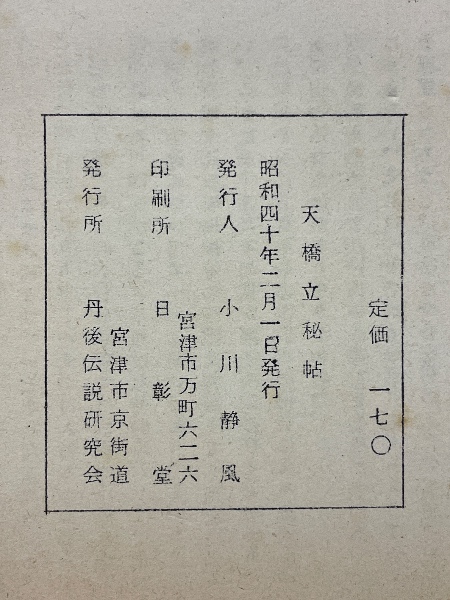 定価 一七〇
天橋立秘帖
昭和四十年二月一日発行
発行人 小川静風
宮津市万町六二六
印刷所 日彰堂
宮津市京街道
発行所 丹後伝説研究会